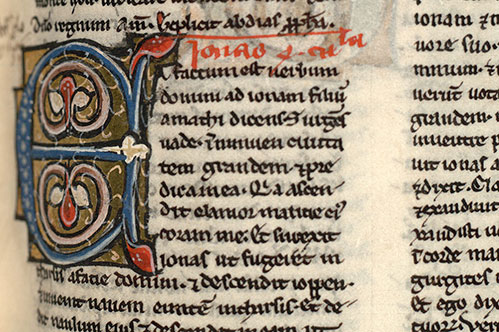 Dño regnum Am̄. Explicit abdias ppha.
Jonas
t factum est verbum
domini ad ionam filiū
amathi dicens. Surge &
uade in niniuen ciuita
tem grandem. & pre
dica in ea. Qia ascen
dit clamor malicie ei
coram me. Et surrexit
ionas ut fugeret in
tharsis a facie domini. & descendit ioppen.
& inuenit nauem euntē in tharsis. Et de
dit naulum eius & descendit in eam ut
ionam & t
uore suo.
mnium. & i
uerūt uota
grandem.
inuentre p
ut ionas a
& dixit. Cla
& exaudiuit
xaudisti u
i corde mar
gurgites
Et ego dix